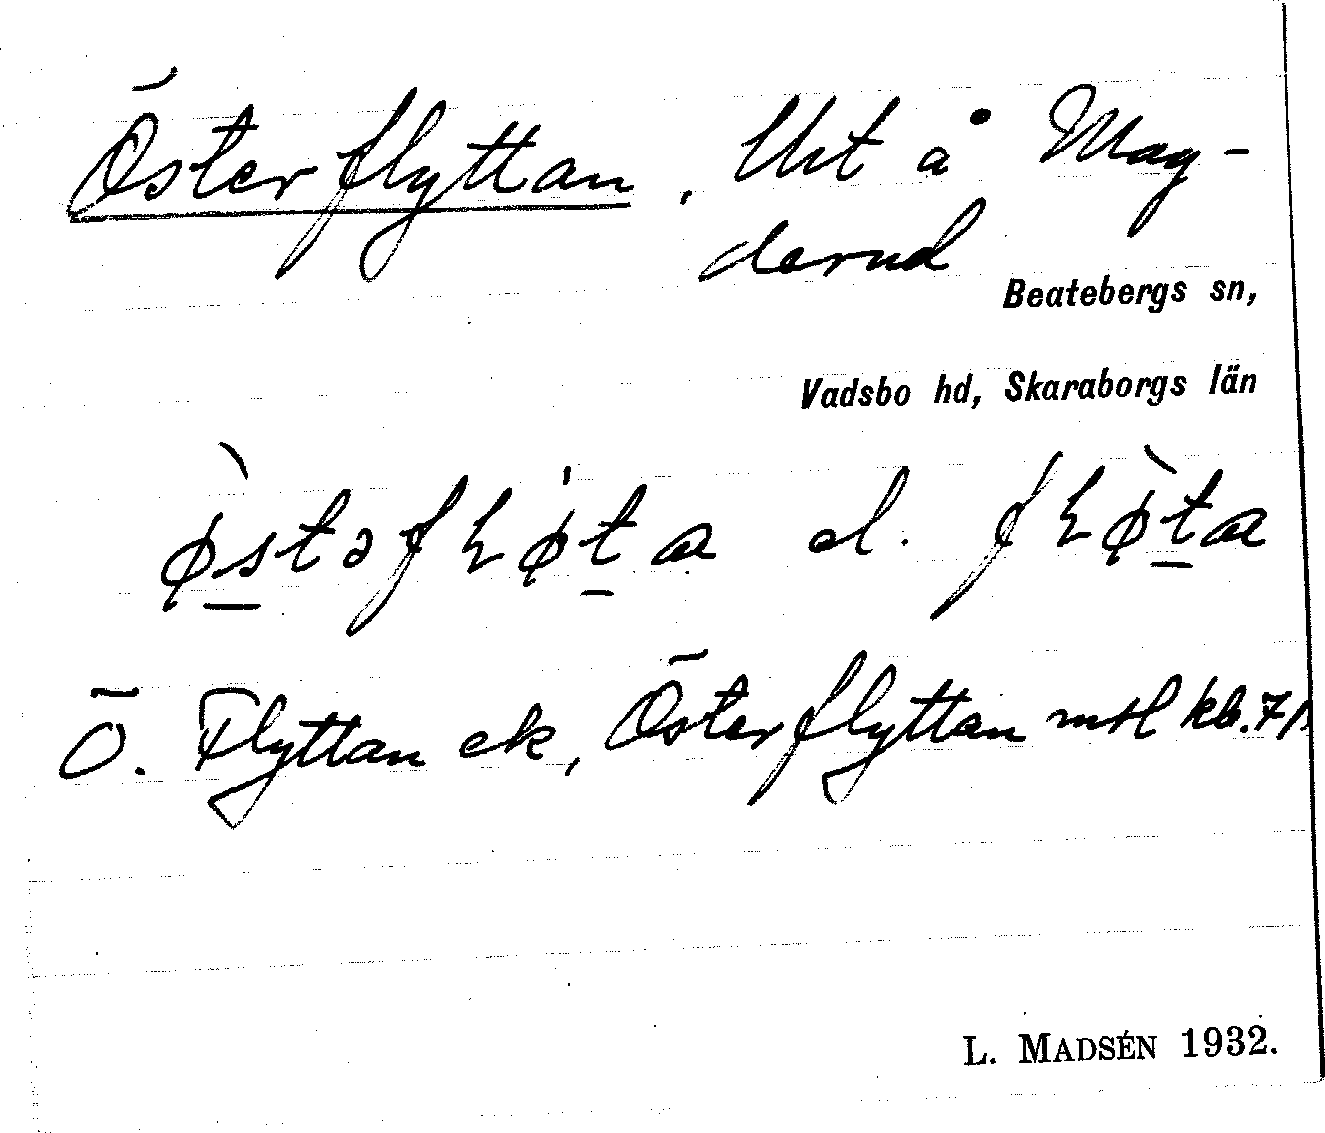 Österflyttan, Utt å Mag-
derud
Beatebergs sn,
Vadsbo hd, Skaraborgs län
el.
Ö. Flyttan ek, Österflyttan mtl kb. 7/
L. MADSÉN 1932.